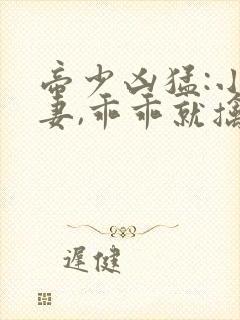 帝少凶猛:小
妻,乖乖就擒
遲健